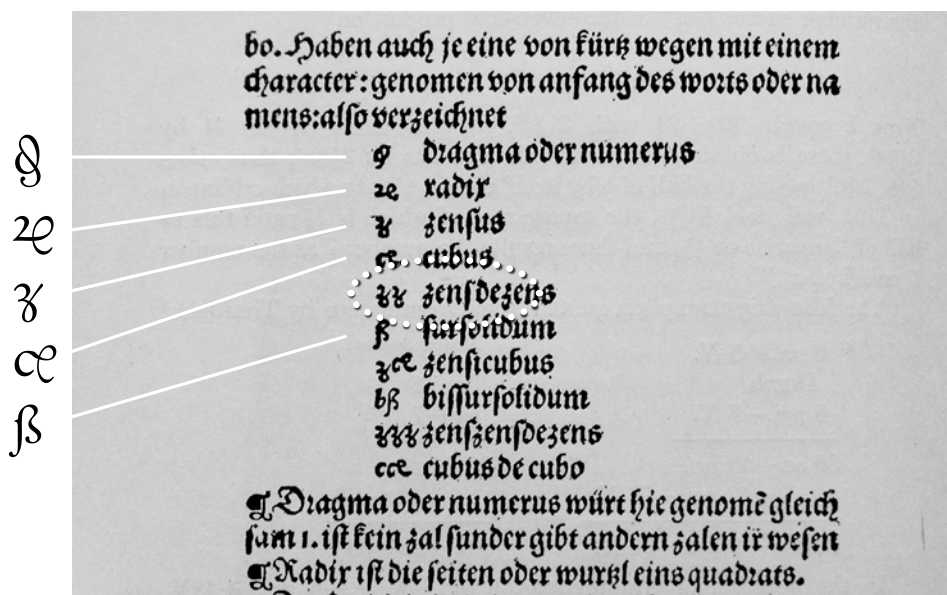 bo. Haben auch je eine von kürtz wegen mit einem
character: genomen von anfang des worts oder na
mens: also verzeichnet
dragma oder numerus
radix
zensus
cubus
zensdezens
ß sursolidum
zensicubus
bß bissursolidum
zenszensdezens
cubus de cubo
¶ Dragma oder numerus würt hie genomē gleich
sam 1. ist kein zal sunder gibt andern zalen ir wesen
¶ Radix ist die seiten oder wurtzl eins quadrats.